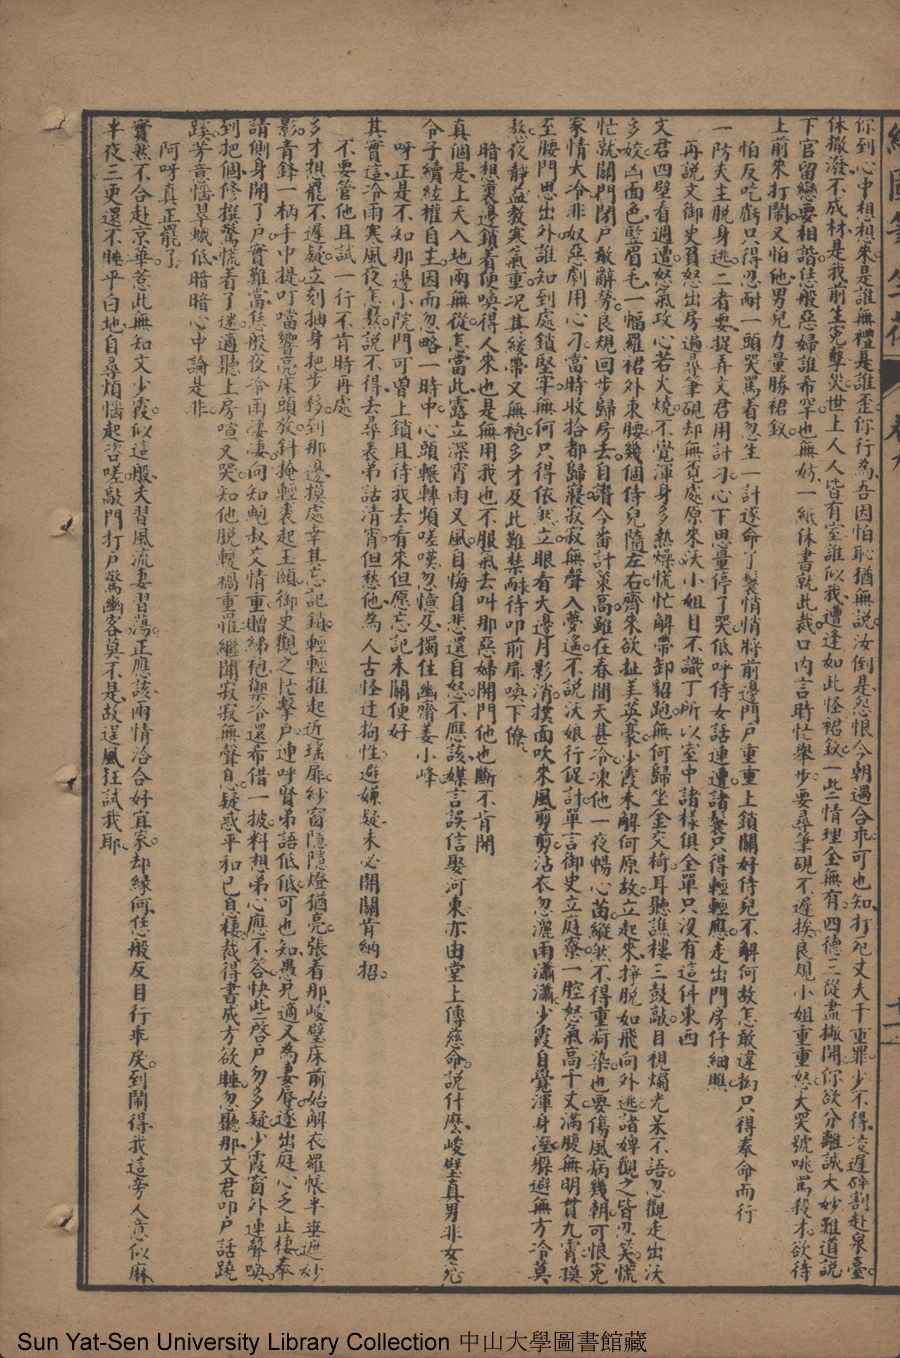 你到心中想想來是誰無禮是誰歪你行為吾因怕恥猶無說汝倒是怨恨今朝遇合乖可也知打死丈夫千重罪少不得凌遲碎割赴泉臺
休撒潑不成材是我前生冤孽災世上人人皆有室誰似我遭逢如此怪裙釵一些情理全無有四德三從盡撇開你欲分離誠大妙難道說
下官留戀要相諧恁般惡婦誰希罕也無妨一紙休書就此裁口內言時忙舉步要尋筆硯不遲挨良規小姐重重怒大哭號咷罵殺才欲待
上前來打鬧又怕他男兒力量勝裙釵
怕反吃虧只得忍耐一頭哭罵着忽生一計遂命丫鬟悄悄將前邊門戶重重上鎖關好侍兒不解何故怎敢違拗只得奉命而行
一防夫主脫身逃二者要捉弄文君用計刁心下思量停了哭低呼侍女話連遭諸鬟只得輕輕應走出門房仔細瞧
再說文御史負怒出房遍尋筆硯却無覓處原來沃小姐目不識丁所以室中諸樣俱全單只沒有這件東西
文君四壁看週遭怒氣攻心若火燒不覺渾身多熱燥慌忙解帶卸貂袍無何歸坐金交椅耳聽譙樓三鼓敲目視燭光呆不語忽觀走出沃
多姣凶面色豎眉毛一幅羅裙外束腰幾個侍兒隨左右齊來欲扯美英豪少霞未解何原故立起來掙脫如飛向外逃諸婢觀之皆忍笑慌
忙就關門閉戶敢辭勞良規回步歸房去自讚今番計策高雖在春間天甚冷凍他一夜暢心苗縱然不得重疴染也要傷風病幾朝可恨冤
家情太冷非奴惡劇用心刁當時收拾都歸寢寂寂無聲入夢遙不說沃娘行促計單言御史立庭寮一腔怒氣高千丈滿腹無明貫九霄摸
至腰門思出外誰知到處鎖堅牢無何只得依然立眼看天邊月影消撲面吹來風翦翦沾衣忽灑雨瀟瀟少霞自覺渾身溼躲避無方冷莫
熬夜靜益教寒氣重況其綾帶又無袍多才及此難禁耐待叩前扉喚下僚
暗想裏邊鎖着便喚得人來也是無用我也不服氣去叫那惡婦開門他也斷不肯開
真個是上天入地兩無從怎當此露立深宵雨又風自悔自悲還自怒不應該媒言誤信娶河東亦由堂上傳慈命說什麼峻璧真男非女兒
令予續絃權自主因而忽略一時中心頭輾轉頻嗟嘆忽憶及獨住幽齋姜小峰
呀正是不知那邊小院門可曾上鎖且待我去看來但原忘記未關便好
其實這冷雨寒風夜怎熬說不得去尋表弟話清宵但愁他為人古怪迂拘性避嫌疑未必開關肯納招
不要管他且試一行不肯時再處
多才想罷不遲疑立刻抽身把步移到那邊摸處幸其忘記鎖輕輕推起近瑤扉紗窗隱隱燈猶亮張看那峻璧床前始解衣羅帳半垂遮妙
影青鋒一柄手中提叮噹響亮床頭放斜掩輕裘起玉頤御史觀之忙擊戶連呼賢弟語低低可也知愚兄適又為妻辱逐出庭心乏止棲奉
請側身開了戶實難當恁般夜冷雨淒淒向知鮑叔交情重贈綈袍禦冷還希借一披料想弟心應不答快些啓戶勿多疑少霞窗外連聲喚
到把個修撰驚慌着了迷適聽上房喧又哭知他脫輕禍重罹繼聞寂寂無聲息疑惑平和已息棲裁得書成方欲睡忽聽那文君叩戶話蹺
蹊芳意惱翠蛾低暗暗心中論是非
阿呀真正罷了
實然不合赴京華惹此無知文少霞似這般夫習風流妻習蕩正應該兩情洽合好宜家却緣何恁般反目行乖戾到鬧得我這旁人意似麻
半夜三更還不睡平白地自尋煩惱起咨嗟敲門打戶驚幽客莫不是故逞風狂試我耶